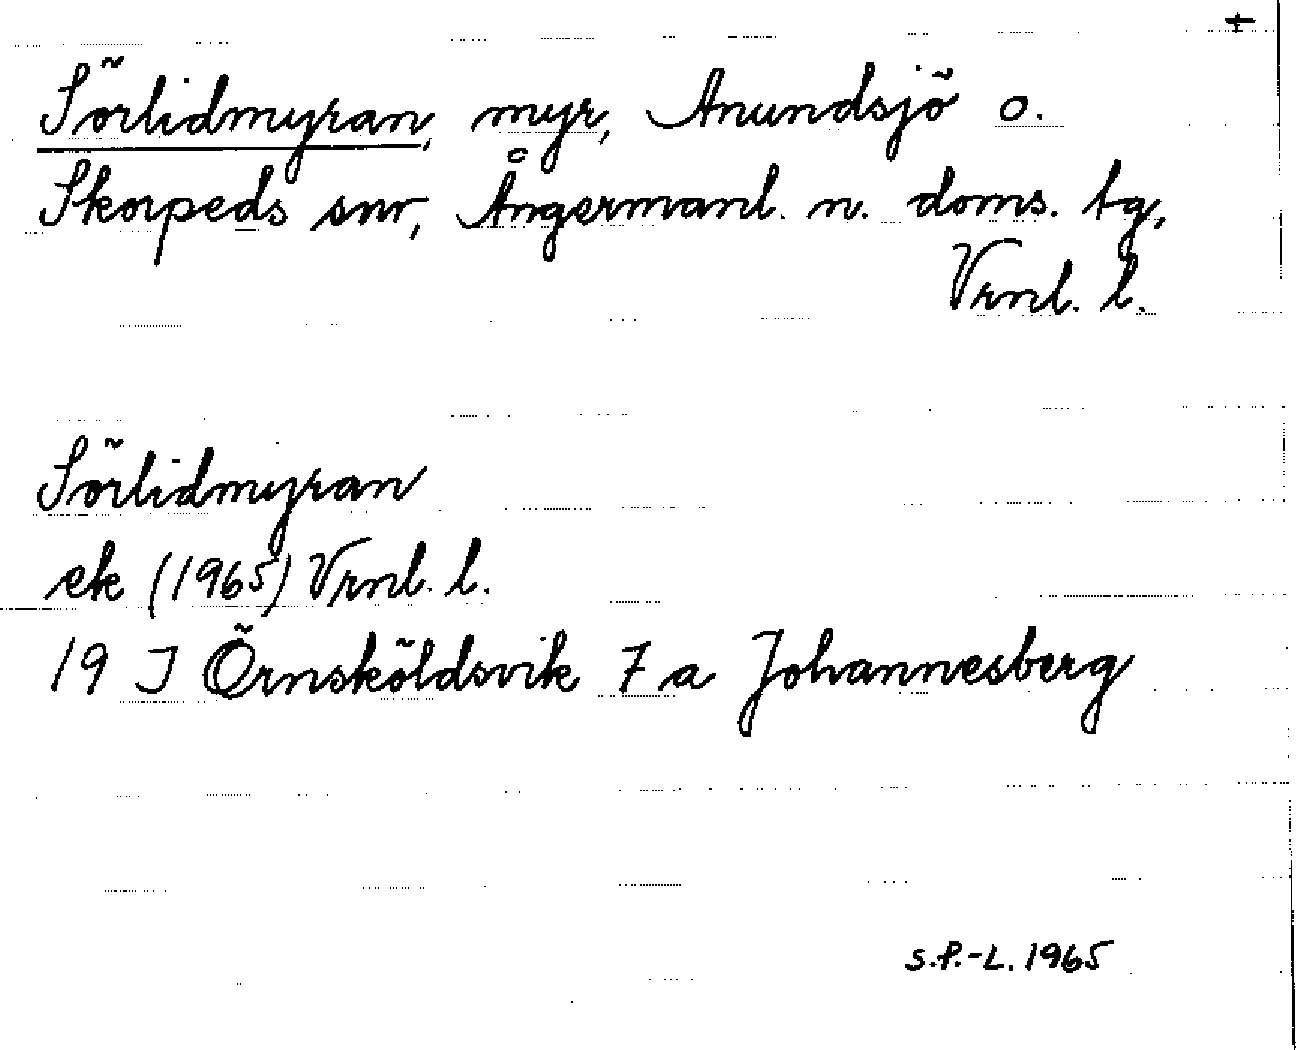 Sörlidmyran, myr, Anundsjö o.
Skorpeds snr, Ångermanl. n. doms. tg,
Vrnl. l.
Sörlidmyran
ek (1965) Vrnl. l.
19 J Örnsköldsvik 7 a Johannesberg
S.P.-L. 1965